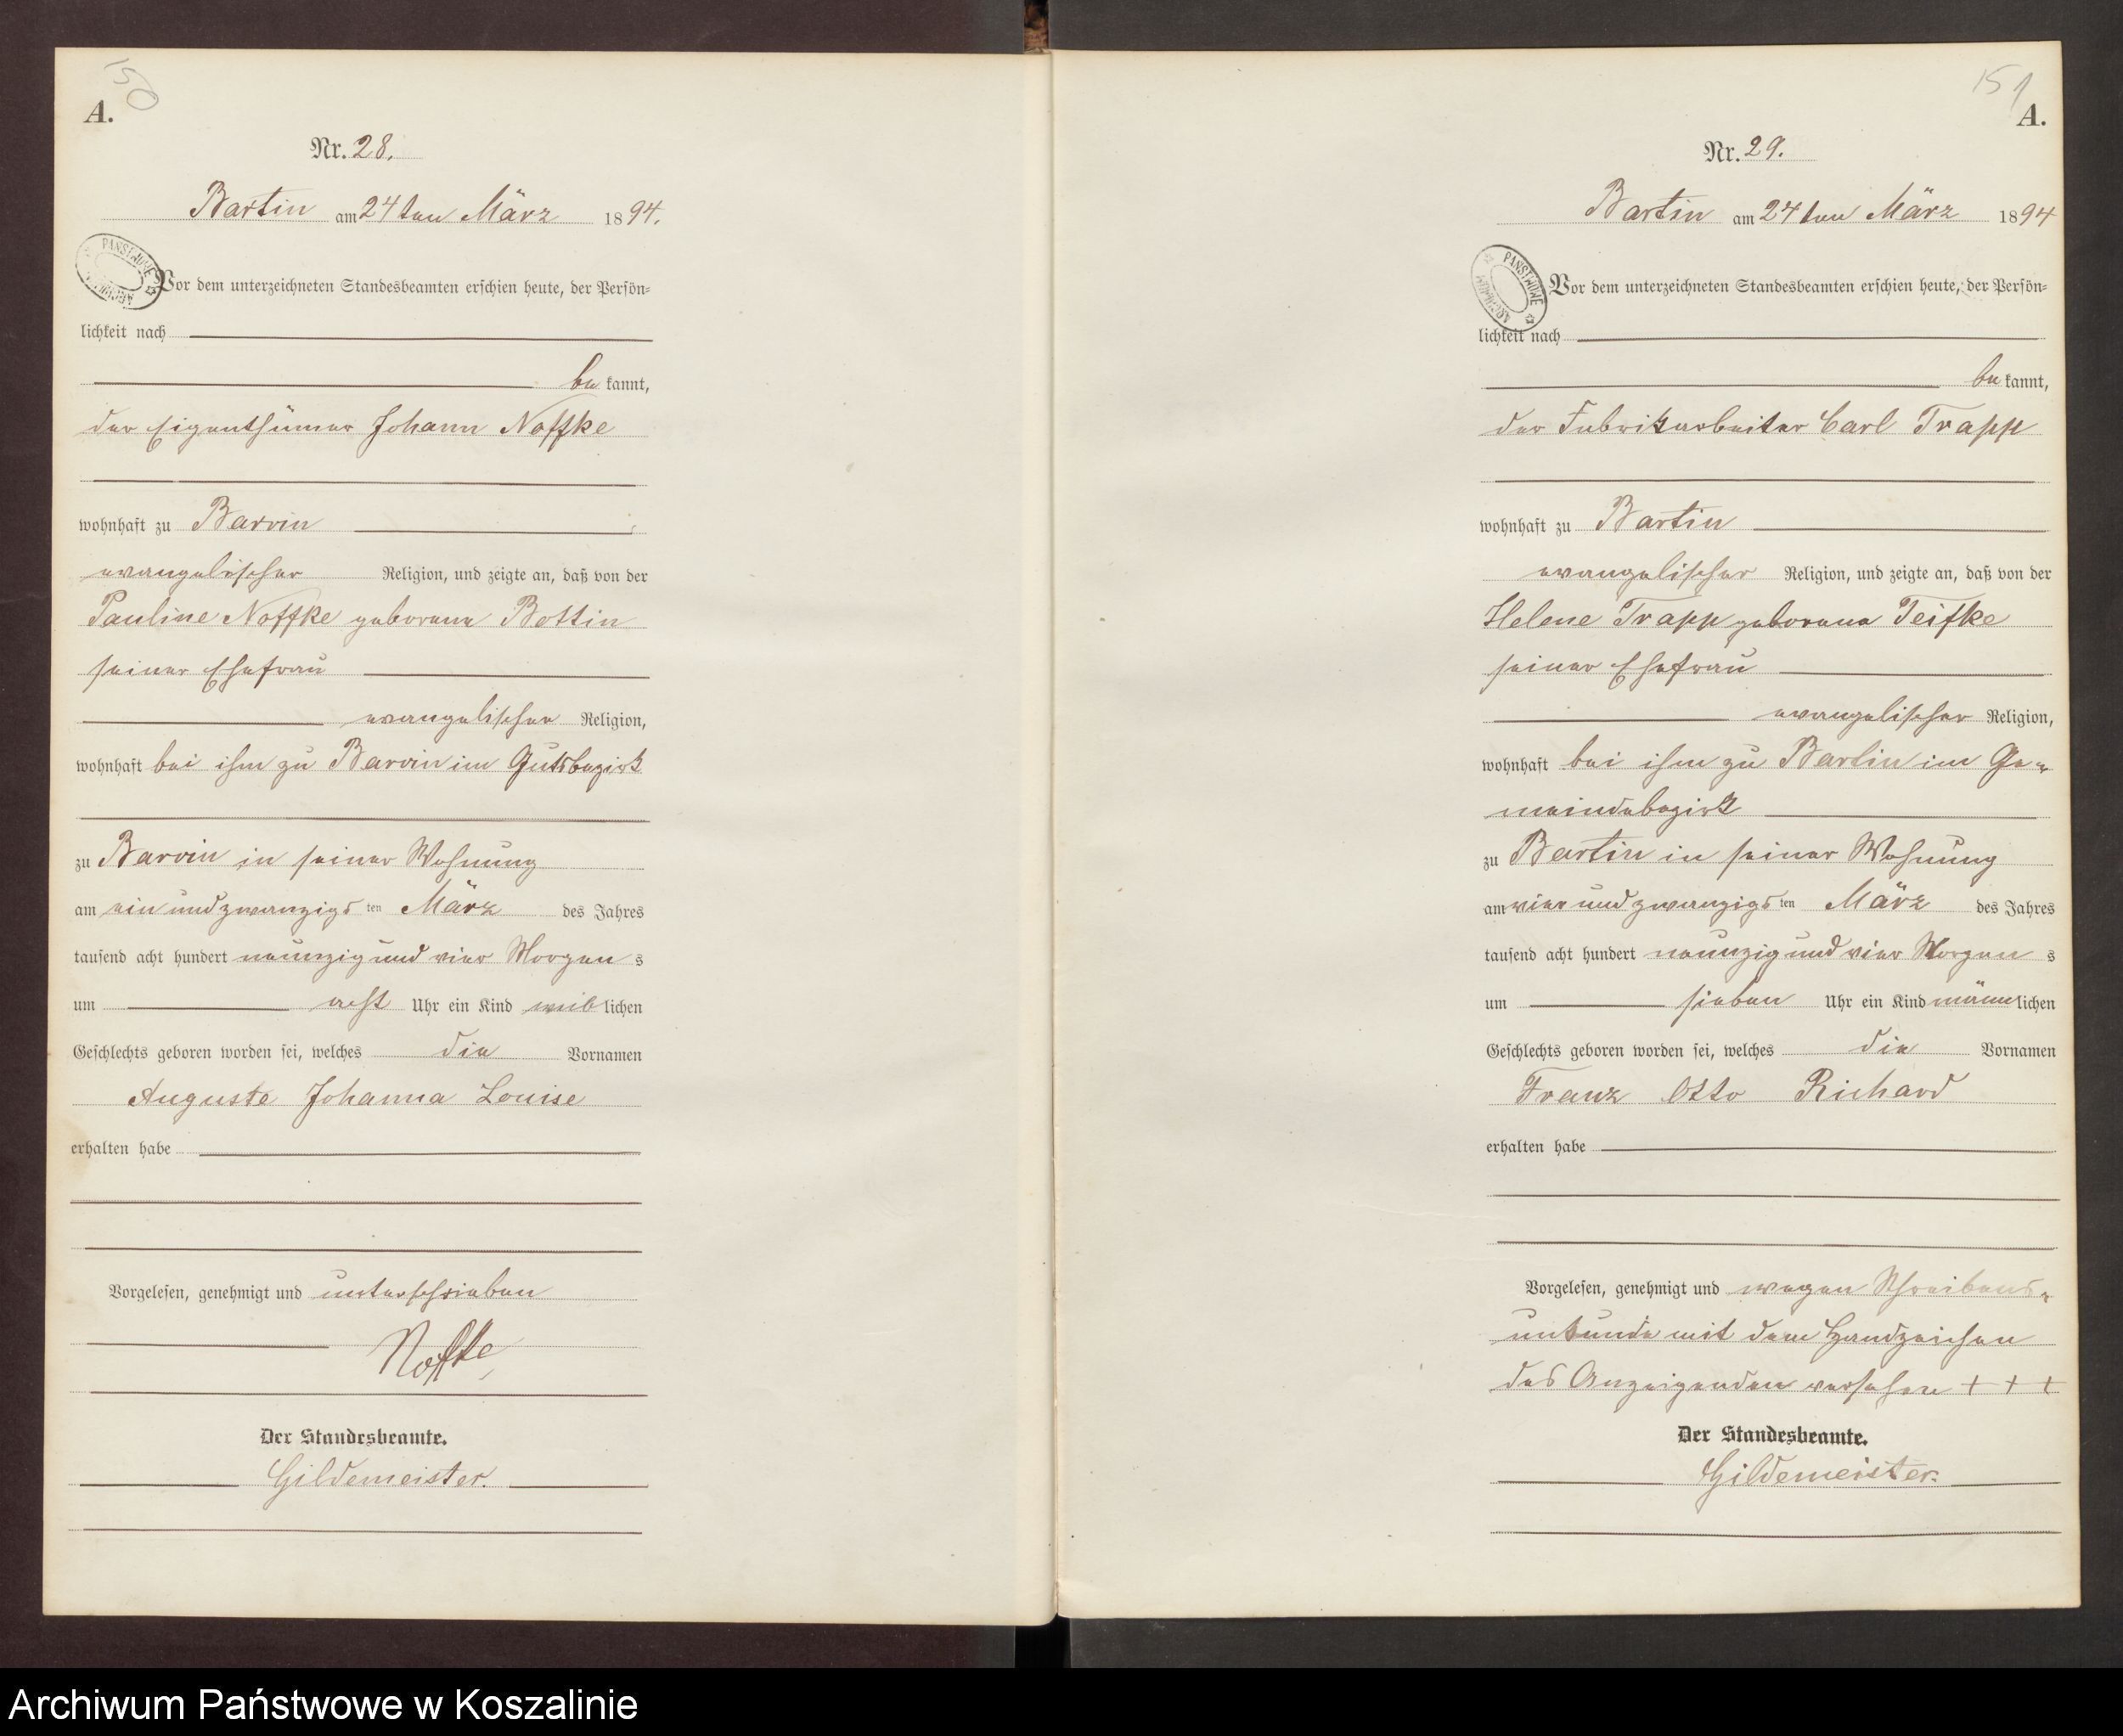 150
A.
Nr. 28.
Bartin am 24ten März 1894.
PAŃSTWOWE ARCHIWUM
Vor dem unterzeichneten Standesbeamten erschien heute, der Persön=
lichkeit nach
bekannt,
der Eigenthümer Johann Noffke
wohnhaft zu Barvin
evangelischer Religion, und zeigte an, daß von der
Pauline Noffke geborene Bottin
seiner Ehefrau
evangelischer Religion,
wohnhaft bei ihm zu Barvin im Gutsbezirk
zu Barvin in seiner Wohnung
am ein und zwanzigs ten März des Jahres
tausend acht hundert neunzig und vier Morgens
um acht Uhr ein Kind weiblichen
Geschlechts geboren worden sei, welches die Vornamen
Auguste Johanna Louise
erhalten habe
Vorgelesen, genehmigt und unterschrieben
Noffke
Der Standesbeamte.
Gildemeister.
151
A.
Nr. 29.
Bartin am 24ten März 1894
PAŃSTWOWE ARCHIWUM
Vor dem unterzeichneten Standesbeamten erschien heute, der Persön=
lichkeit nach
bekannt,
der Fabrikarbeiter Carl Trapp
wohnhaft zu Bartin
evangelischer Religion, und zeigte an, daß von der
Helene Trapp geborene Teifke
seiner Ehefrau
evangelischer Religion,
wohnhaft bei ihm zu Bartin im Ge=
meindebezirk
zu Bartin in seiner Wohnung
am vier und zwanzigs ten März des Jahres
tausend acht hundert neunzig und vier Morgens
um sieben Uhr ein Kind männlichen
Geschlechts geboren worden sei, welches die Vornamen
Franz Otto Richard
erhalten habe
Vorgelesen, genehmigt und wegen Schreibens=
unkunde mit dem Handzeichen
des Anzeigenden versehen + + +
Der Standesbeamte.
Gildemeister.
Archiwum Państwowe w Koszalinie